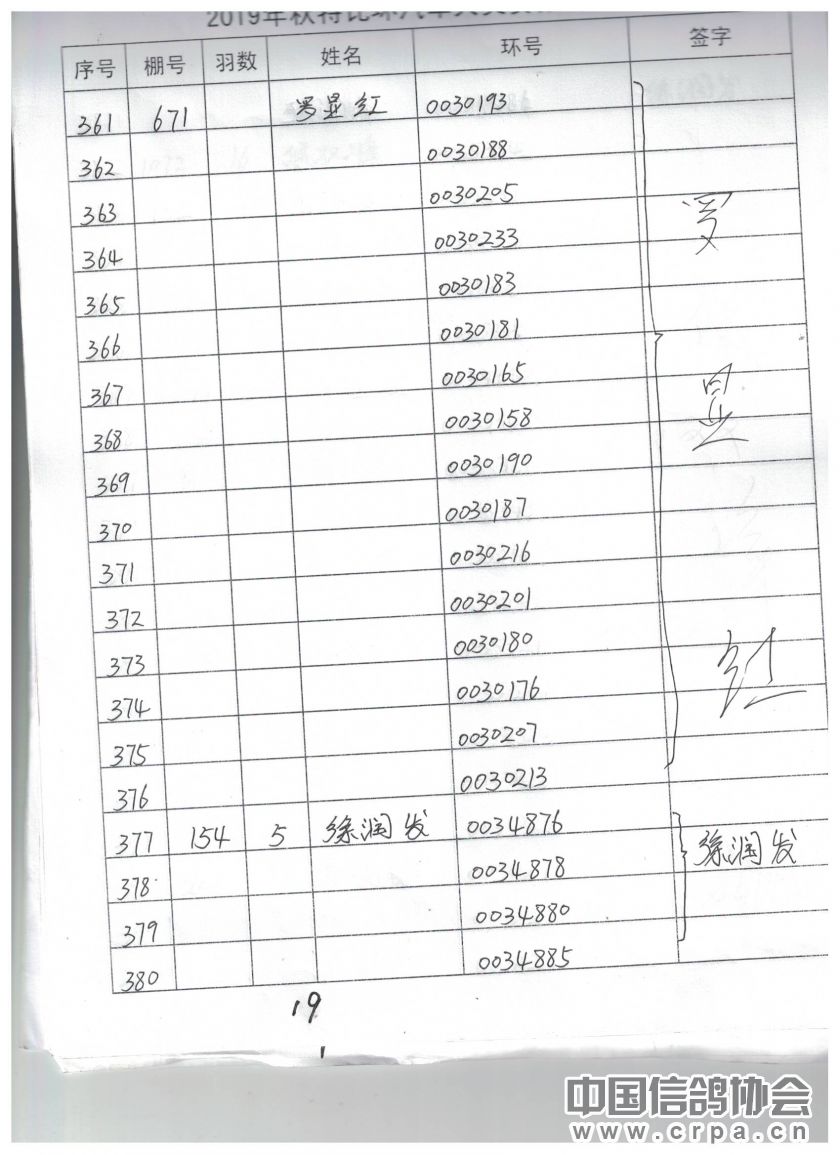 2019年秋特比环汽车大奖
序号 棚号 羽数 姓名 环号 签字
361 671 罗显红 0030193
362 0030188
363 0030205 罗
364 0030233
365 0030183
366 0030181
367 0030165 显
368 0030158
369 0030190
370 0030187
371 0030216
372 0030201
373 0030180 红
374 0030176
375 0030207
376 0030213
377 154 5 徐润发 0034876 徐润发
378 0034878
379 0034880
380 0034885
19
中国信鸽协会
www.crpa.cn